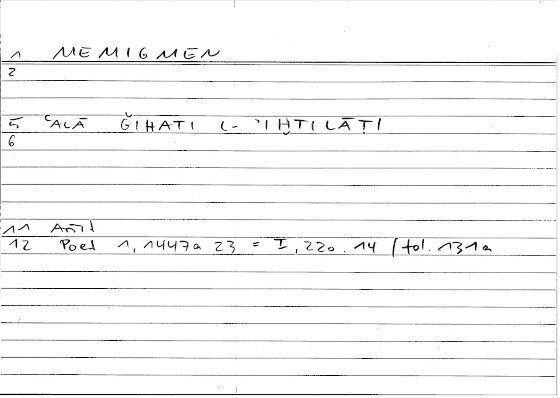 1 MEMIGMEN
2
5 ʿALĀ ǦIHATI L-ʾIḪTILĀṬI
6
11 Arist
12 Poet 1, 1447a 23 = I, 220.14 / fol. 131a